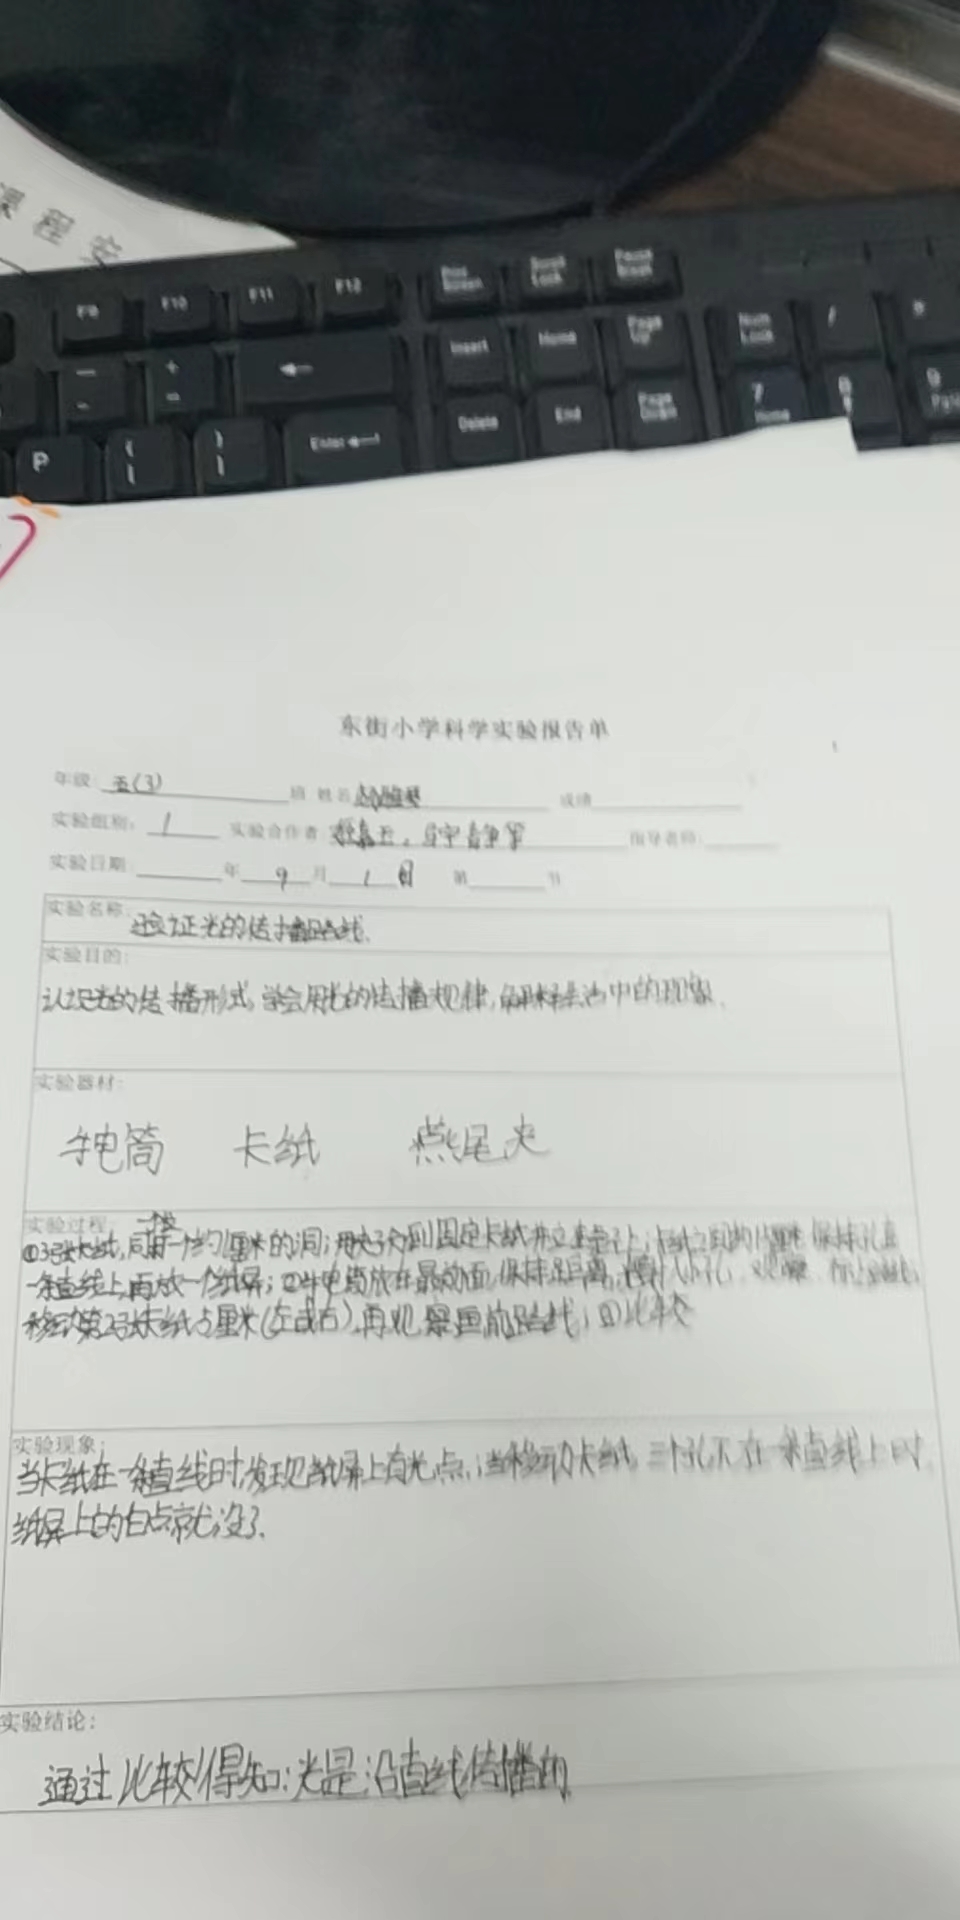 课程安
F9 F10 F11 F12 Print Screen Scroll Lock Pause Break
— - + = Insert Home Page Up Num Lock / *
Delete End Page Down 7 Home 8 9 PgUp
P { [ } ] Enter
东街小学科学实验报告单
年级: 五(3) 班 姓名 成绩
实验组别: 1 实验合作者 指导老师:
实验日期 年 9 月 1 日 第 节
实验名称: 验证光的传播路线.
实验目的:
认识光的传播形式,学会用光的传播规律,解释生活中的现象.
实验器材:
手电筒 卡纸 燕尾夹
实验过程:
①3张卡纸,同一个约1厘米的洞;用夹子分别固定卡纸并立在
一条直线上,再放一个纸屏;②手电筒放在最前面,保持距离,
移动第2张卡纸5厘米(左或右).再观察 路线;④比较
实验现象:
当卡纸在一条直线时,发现纸屏上有光点,;当移动卡纸,三个孔不在一条直线上时
纸屏上的白点就没了.
实验结论:
通过比较得知:光是沿直线传播的.